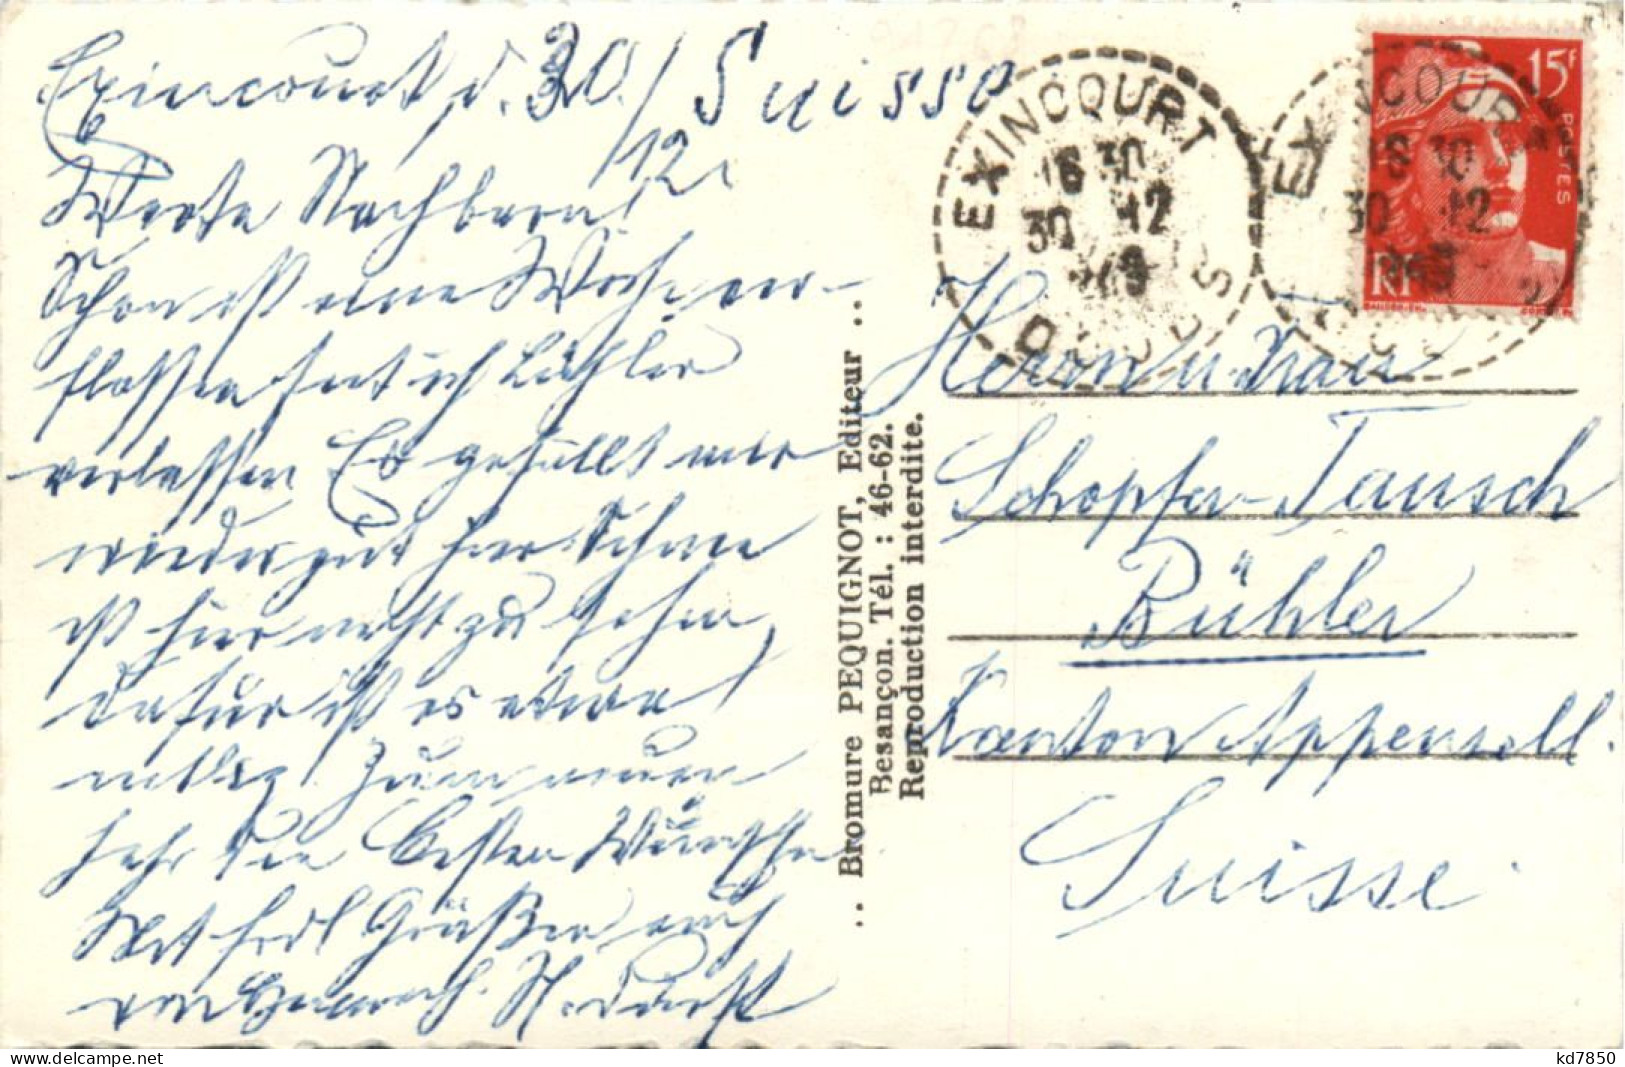 Exincourt d. 30./ Suisse
12.
Werte Nachbarn!
Schon ist eine Woche ver-
flossen seit ich Bühler
verlassen Es gefällt mir
wieder gut hier. Schnee
ist hier nicht zu sehen,
dafür ist es etwas
neblig. Zum neuen
Jahr die besten Wünsche
Mit frdl Grüßen auch
von
.. Bromure PEQUIGNOT, Editeur ..
Besançon. Tél. : 46-62.
Reproduction interdite.
EXINCOURT
16 30
30 12
DOUBS
EXINCOURT
16 30
30 12
15F
POSTES
RF
Herrn u. Frau
Schopfer-Tausch
Bühler
Kanton Appenzell.
Suisse.
https://www.delcampe.net
kd7850